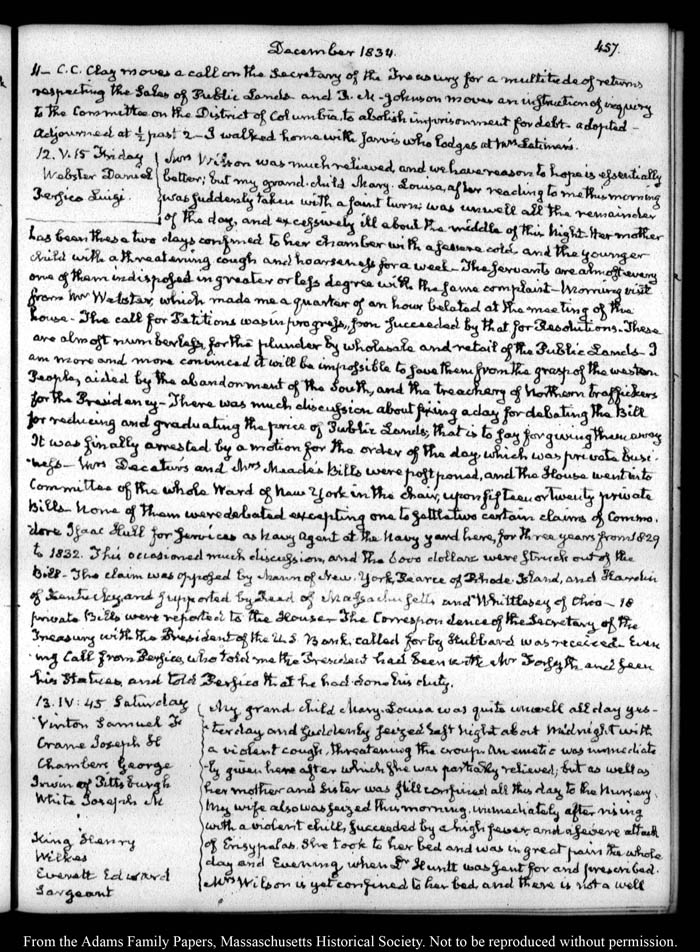 December 1834.
457.
4 — C. C. Clay moves a call on the Secretary of the Treasury for a multitude of returns
respecting the Sales of Public Lands and R. M. Johnson moves an instruction of enquiry
to the Committee on the District of Columbia, to abolish imprisonment for debt — adopted —
Adjourned at ½ past 2 — I walked home with Jarvis who lodges at Mrs Latimer's.
12. V. 15 Friday
Webster Daniel
Persico Luigi.
Mrs Wilson was much relieved, and we have reason to hope is essentially
better; but my grand-child Mary-Louisa, after reading to me this morning
was suddenly taken with a faint turn; was unwell all the remainder
of the day, and excessively ill about the middle of this Night. Her mother
has been these two days confined to her chamber with a severe cold and the younger
child with a threatening cough and hoarseness for a week — The servants are almost every
one of them indisposed in greater or less degree with the same complaint — Morning visit
from Mr Webster, which made me a quarter of an hour belated at the meeting of the
house — The call for Petitions was in progress, soon succeeded by that for Resolutions. These
are almost numberless, for the plunder by wholesale and retail of the Public Lands — I
am more and more convinced it will be impossible to save them from the grasp of the western
People, aided by the abandonment of the South, and the treachery of Northern traffickers
for the Presidency — There was much discussion about fixing a day for debating the Bill
for reducing and graduating the price of Public Lands; that is to say for giving them away
It was finally arrested by a motion for the order of the day which was private busi-
-ness — Mrs Decatur's and Mrs Meade's Bills were postponed, and the House went into
Committee of the whole Ward of New York in the chair, upon fifteen or twenty private
Bills. None of them were debated excepting one to settle two certain claims of Commo-
dore Isaac Hull for services as Navy Agent at the Navy yard here, for three years from 1829
to 1832. This occasioned much discussion, and the 6000 dollars were struck out of the
Bill — The claim was opposed by Mann of New-York, Pearce of Rhode Island, and Hardin
of Kentucky and supported by Reed of Massachusetts and Whittlesey of Ohio — 18
private Bills were reported to the House — The Correspondence of the Secretary of the
Treasury with the President of the U.S. Bank, called for by Stubbard was received. Even-
ing Call from Persico, who told me the President had been with Mr Forsyth and seen
his Statues, and told Persico that he had done his duty.
13. IV: 45 Saturday
Vinton Samuel F
Crane Joseph H
Chambers George
Irwin of Pittsburgh
White Joseph M
King Henry
Wilkes
Everett Edward
Sargeant
My grand child Mary-Louisa was quite unwell all day yes-
-terday and suddenly seized last night about midnight with
a violent cough, threatening the croup. An emetic was immediate
-ly given here after which she was partially relieved; but as well as
her mother and Sister was still confined all this day to the Nursery.
My wife also was seized this morning, immediately after rising
with a violent chill, succeeded by a high fever, and a severe attack
of Erisypelas. She took to her bed and was in great pain the whole
day and Evening, when Dr Huntt was sent for and prescribed.
Mrs Wilson is yet confined to her bed, and there is not a well
From the Adams Family Papers, Massachusetts Historical Society. Not to be reproduced without permission.